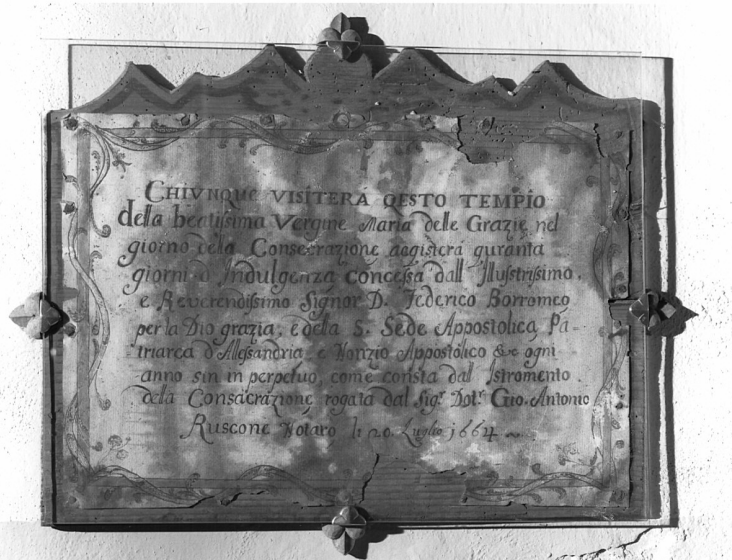 CHIVNQUE VISITERA QESTO TEMPIO
della beatissima Vergine Maria delle Grazie nel
giorno della Consecrazione aqistera quranta
giorni d Indulgenza concessa dall Illustrissimo.
e Reverendissimo Signor D. Federico Borromeo
per la Dio grazia, e della S. Sede Appostolica Pa-
triarca d'Allessandria e Nonzio Appostolico &c ogni
anno sin in perpetuo, come consta dal Istromento
della Consacrazione rogata dal Sig.r Dot.r Gio. Antonio
Ruscone Notaro li 20. Luglio 1664